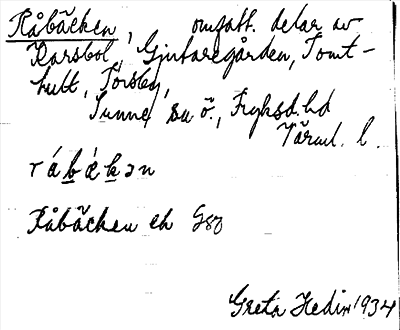 Råbäcken, omfatt. delar av
Karsbol, Gjutaregården, Tomt-
hult, Torsby,
Sunne su ö., Fryksd. hd
Värml. l.
råbækən
Råbäcken ek
Greta Hedin 1934